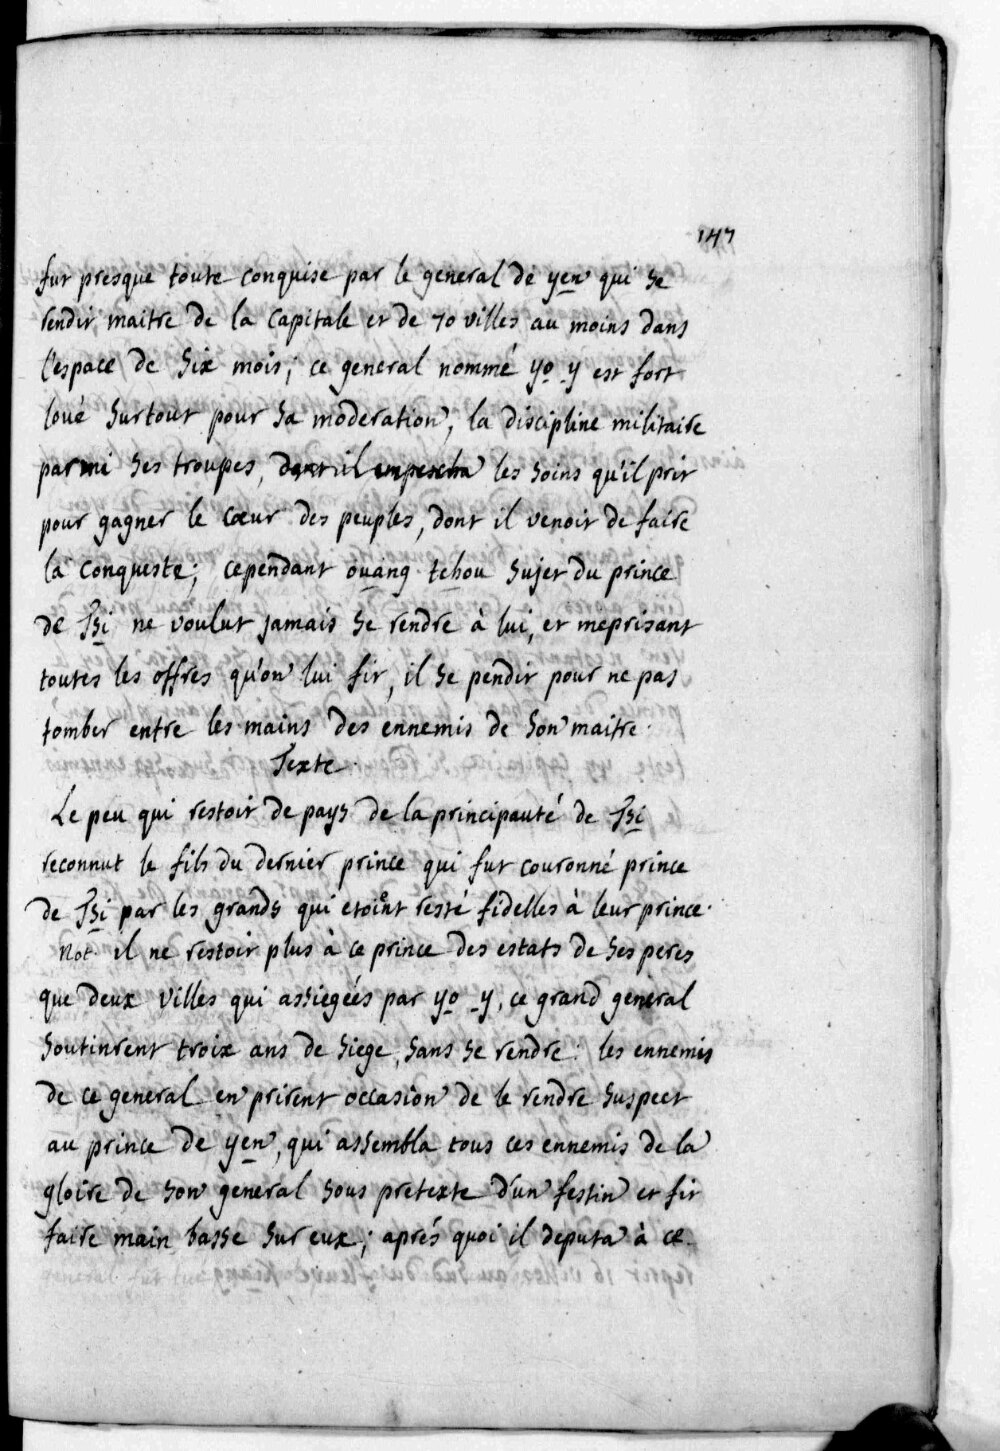 147
fut presque toute conquise par le general de yen qui se
rendit maitre de la capitale et de 70 villes au moins dans
l'espace de six mois; ce general nommé yo y est fort
loué surtout pour sa moderation, la discipline militaire
parmi ses troupes, dont il empescha les soins qu'il prit
pour gagner le cœur des peuples, dont il venoit de faire
la conqueste; cependant ouang tchou sujet du prince
de Tsi ne voulut jamais se rendre à lui, et meprisant
toutes les offres qu'on lui fit, il se pendit pour ne pas
tomber entre les mains des ennemis de son maitre.
Texte.
Le peu qui restoit de pays de la principauté de Tsi
reconnut le fils du dernier prince qui fut couronné prince
de Tsi par les grands qui etoient resté fidelles à leur prince.
Not. il ne restoit plus à ce prince des estats de ses peres
que deux villes qui assiegéés par yo y, ce grand general
soutinrent troix ans de siege, sans se rendre: les ennemis
de ce general en prirent occasion de le rendre suspect
au prince de yen, qui assembla tous ces ennemis de la
gloire de son general sous pretexte d'un festin et fit
faire main basse sur eux; aprés quoi il deputa à ce